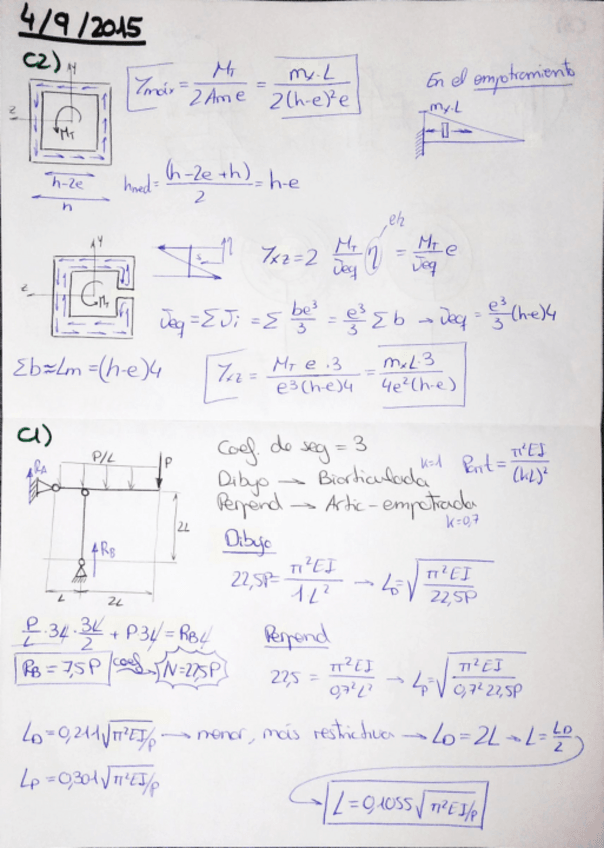 4/9/2015
C2)
y
z
M_T
h-2e
h
τmáx = M_T / 2Am e = mx·L / 2(h-e)²e
En el empotramiento
mx·L
hmed = (h-2e+h) / 2 = h-e
y
z
M_T
η
τxz = 2 M_T/Jeq η = M_T/Jeq e
e/2
Jeq = ΣJi = Σ be³/3 = e³/3 Σb → Jeq = e³/3 (h-e)4
Σb≈Lm = (h-e)4
τxz = M_T e·3 / e³(h-e)4 = mxL·3 / 4e²(h-e)
C1)
Coef. de seg = 3
Dibujo → Biarticulada k=1
Pcrit = π²EI / (kL)²
Perpend → Artic-empotrada
k=0,7
R_A
P/L
P
2L
R_B
L 2L
Dibujo
22,5P = π²EI / 1L² → L_D = √(π²EI / 22,5P)
P/L · 3L · 3L/2 + P3L = R_B L
R_B = 7,5P coef → N=22,5P
Perpend
22,5 = π²EI / 0,7²L² → L_P = √(π²EI / 0,7² 22,5P)
L_D = 0,211√(π²EI/P) → menor, más restrictiva → L_D = 2L → L = L_D/2
L_P = 0,301√(π²EI/P)
L = 0,1055√(π²EI/P)